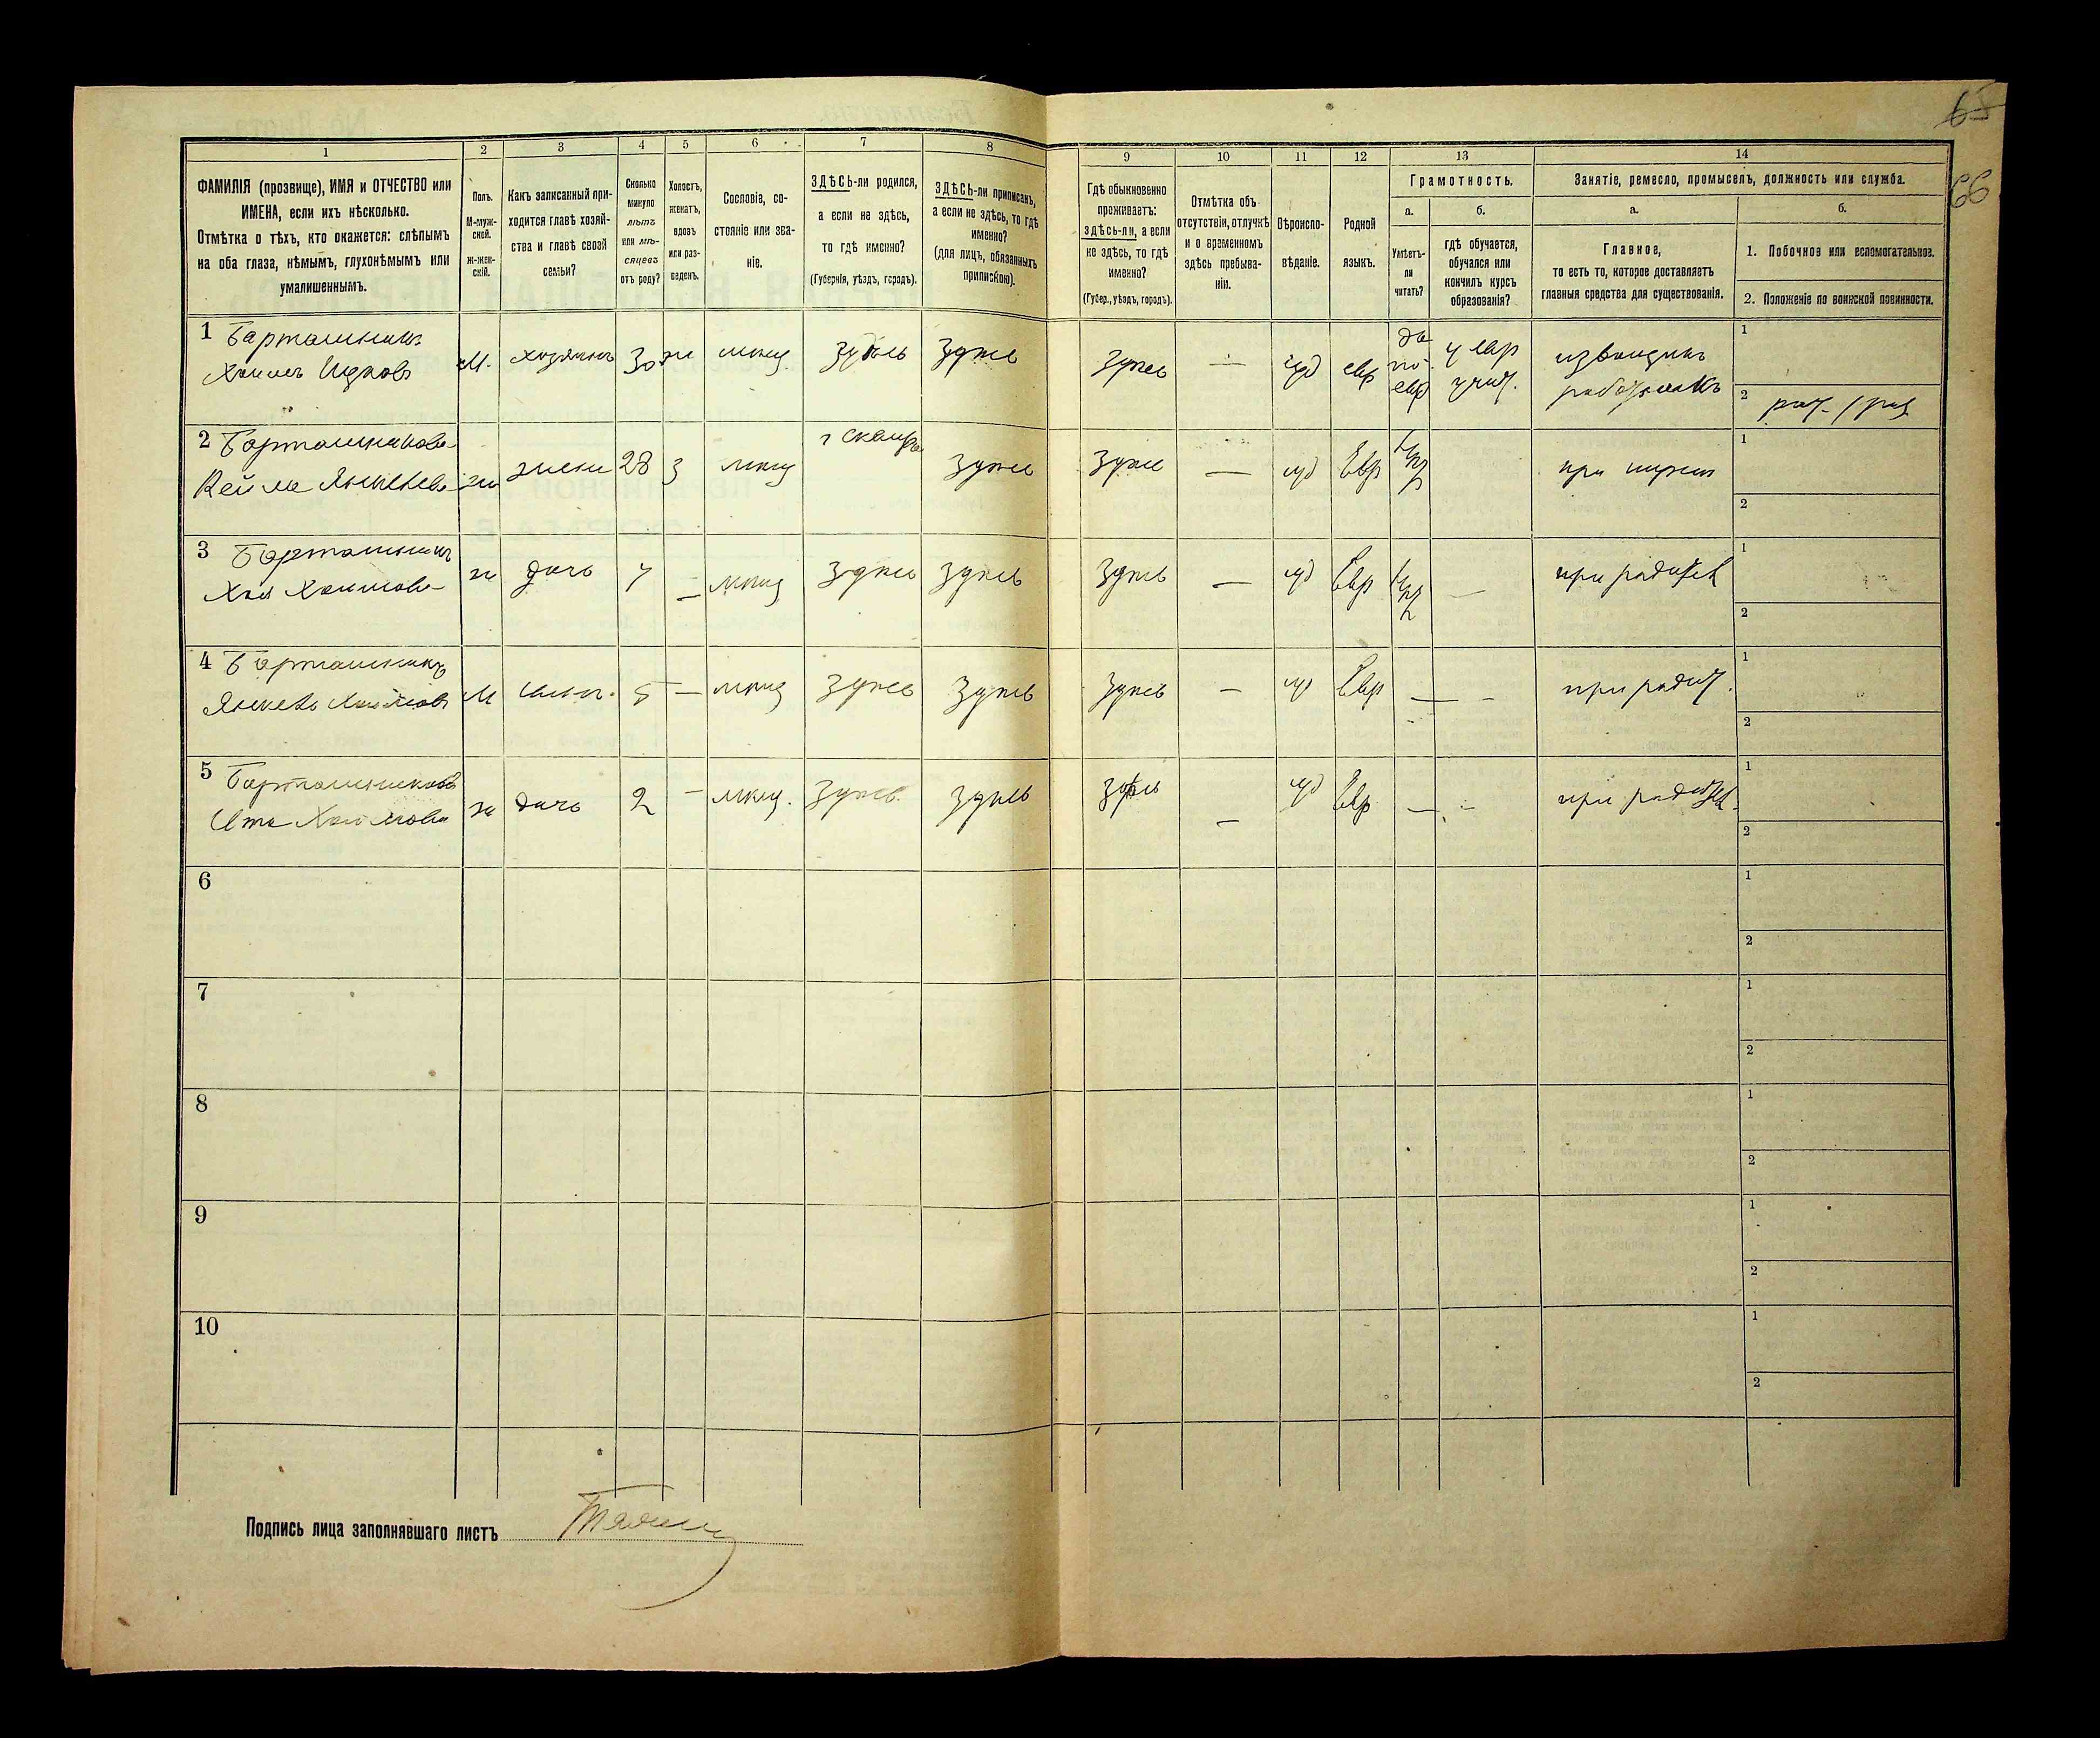 65
66
1 2 3 4 5 6 7 8 9 10 11 12 13 14
ФАМИЛІЯ (прозвище), ИМЯ и ОТЧЕСТВО или
ИМЕНА, если ихъ нѣсколько.
Отмѣтка о тѣхъ, кто окажется: слѣпымъ
на оба глаза, нѣмымъ, глухонѣмымъ или
умалишеннымъ.
Полъ.
М-муж-
ской.
ж-жен-
скій.
Какъ записанный при-
ходится главѣ хозяй-
ства и главѣ своей
семьи?
Сколько
минуло
лѣтъ
или мѣ-
сяцевъ
отъ роду?
Холостъ,
женатъ,
вдовъ
или раз-
веденъ.
Сословіе, со-
стояніе или зва-
ніе.
ЗДѢСЬ-ли родился,
а если не здѣсь,
то гдѣ именно?
(Губернія, уѣздъ, городъ).
ЗДѢСЬ-ли приписанъ,
а если не здѣсь, то гдѣ
именно?
(для лицъ, обязанныхъ
припиской).
Гдѣ обыкновенно
проживаетъ:
здѣсь-ли, а если
не здѣсь, то гдѣ
именно?
(Губер., уѣздъ, городъ).
Отмѣтка объ
отсутствіи, отлучкѣ
и о временномъ
здѣсь пребыва-
ніи.
Вѣроиспо-
вѣданіе.
Родной
языкъ.
Грамотность.
а.
Умѣетъ-
ли
читать?
б.
гдѣ обучается,
обучался или
кончилъ курсъ
образованія?
Занятіе, ремесло, промыселъ, должность или служба.
а.
Главное,
то есть то, которое доставляетъ
главныя средства для существованія.
б.
1. Побочное или вспомогательное.
2. Положеніе по воинской повинности.
1 Барташникъ
Хаимъ Ицковъ
М. хозяинъ 30 ж мѣщ. здѣсь здѣсь здѣсь — іуд евр
да
по
евр
у евр
учит.
извощикъ
работникъ
1
2
2 Барташникова
Кейла Янкелева
ж жена 28 з мѣщ г Сквира здѣсь здѣсь — іуд Евр нѣт при мужѣ
1
2
3 Барташникъ
Хая Хаимова
ж дочь 7 — мѣщ здѣсь здѣсь здѣсь — іуд Евр нѣт — при родител
1
2
4 Барташникъ
Янкель Хаимовъ
М сынъ. 5 — мѣщ здѣсь здѣсь здѣсь — іуд Евр — — при родит.
1
2
5 Барташникова
Ита Хаимова
ж дочь 2 — мѣщ. здѣсь здѣсь здѣсь — іуд Евр — — при родител.
1
2
6
1
2
7
1
2
8
1
2
9
1
2
10
1
2
Подпись лица заполнявшаго листъ